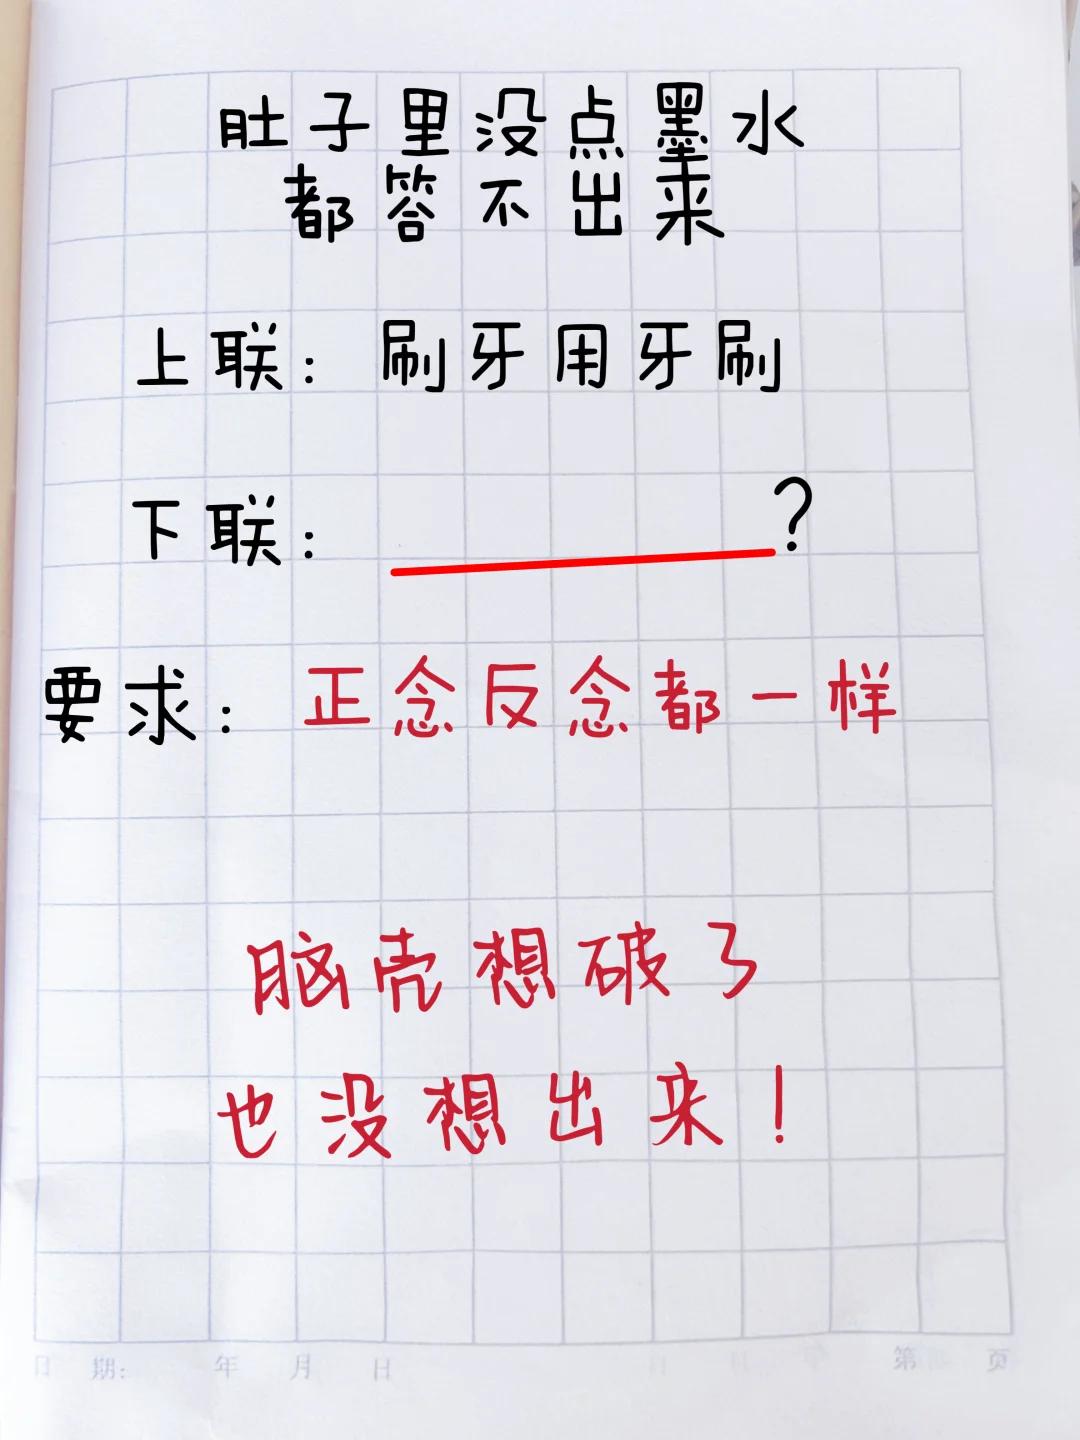 肚子里没点墨水
都答不出来
上联：刷牙用牙刷
下联：________?
要求：正念反念都一样
脑壳想破了
也没想出来！
日 期： 年 月 日 第 页